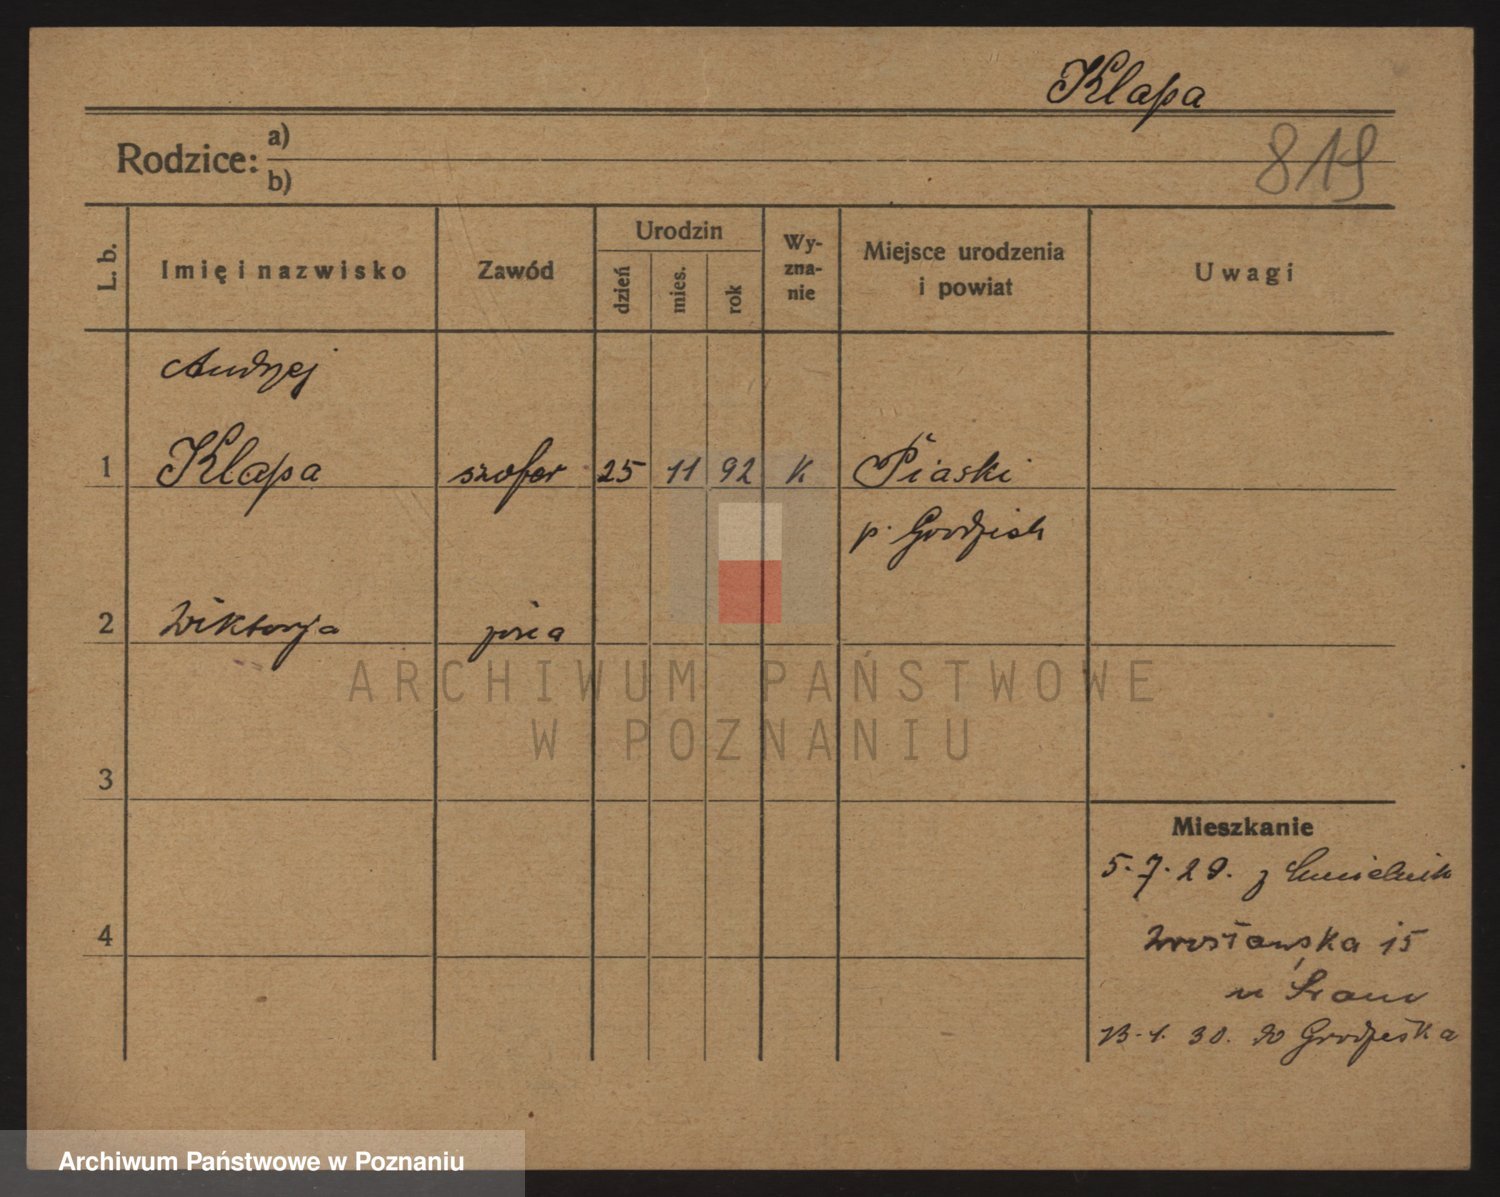 Klapa
819
Rodzice: a)
b)
L. b.
Imię i nazwisko
Zawód
Urodzin
dzień
mies.
rok
Wy-
zna-
nie
Miejsce urodzenia
i powiat
Uwagi
Andrzej
1 Klapa szofer 25 11 92 K Piaski
p. Grodzisk
2 Wiktorja
ARCHIWUM PAŃSTWOWE
W POZNANIU
3
Mieszkanie
5.7.29. z
4
15
30. do Grodziska
Archiwum Państwowe w Poznaniu